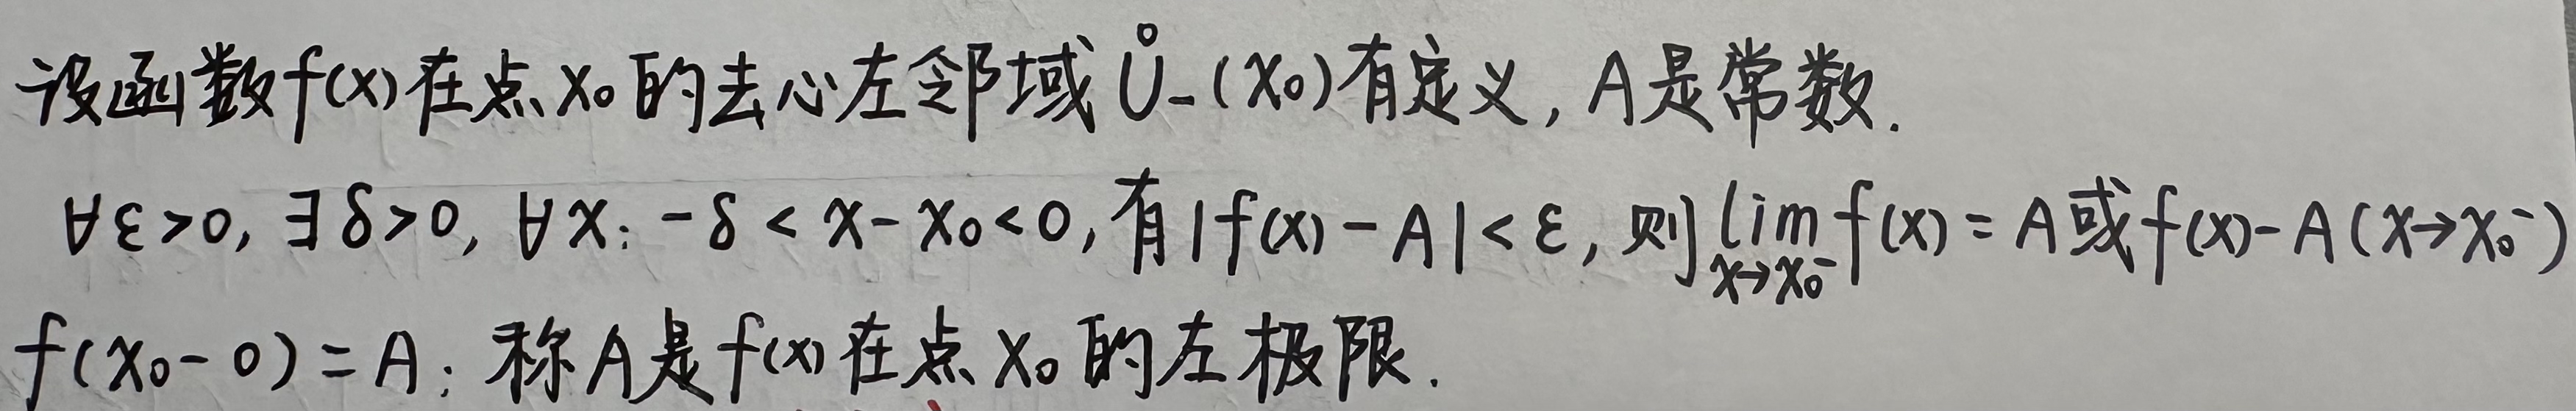 设函数f(x)在点x₀的去心左邻域Ů₋(x₀)有定义, A是常数.
∀ε>0, ∃δ>0, ∀x: -δ<x-x₀<0, 有|f(x)-A|<ε, 则lim_{x→x₀⁻}f(x)=A或f(x)-A(x→x₀⁻)
f(x₀-0)=A; 称A是f(x)在点x₀的左极限.